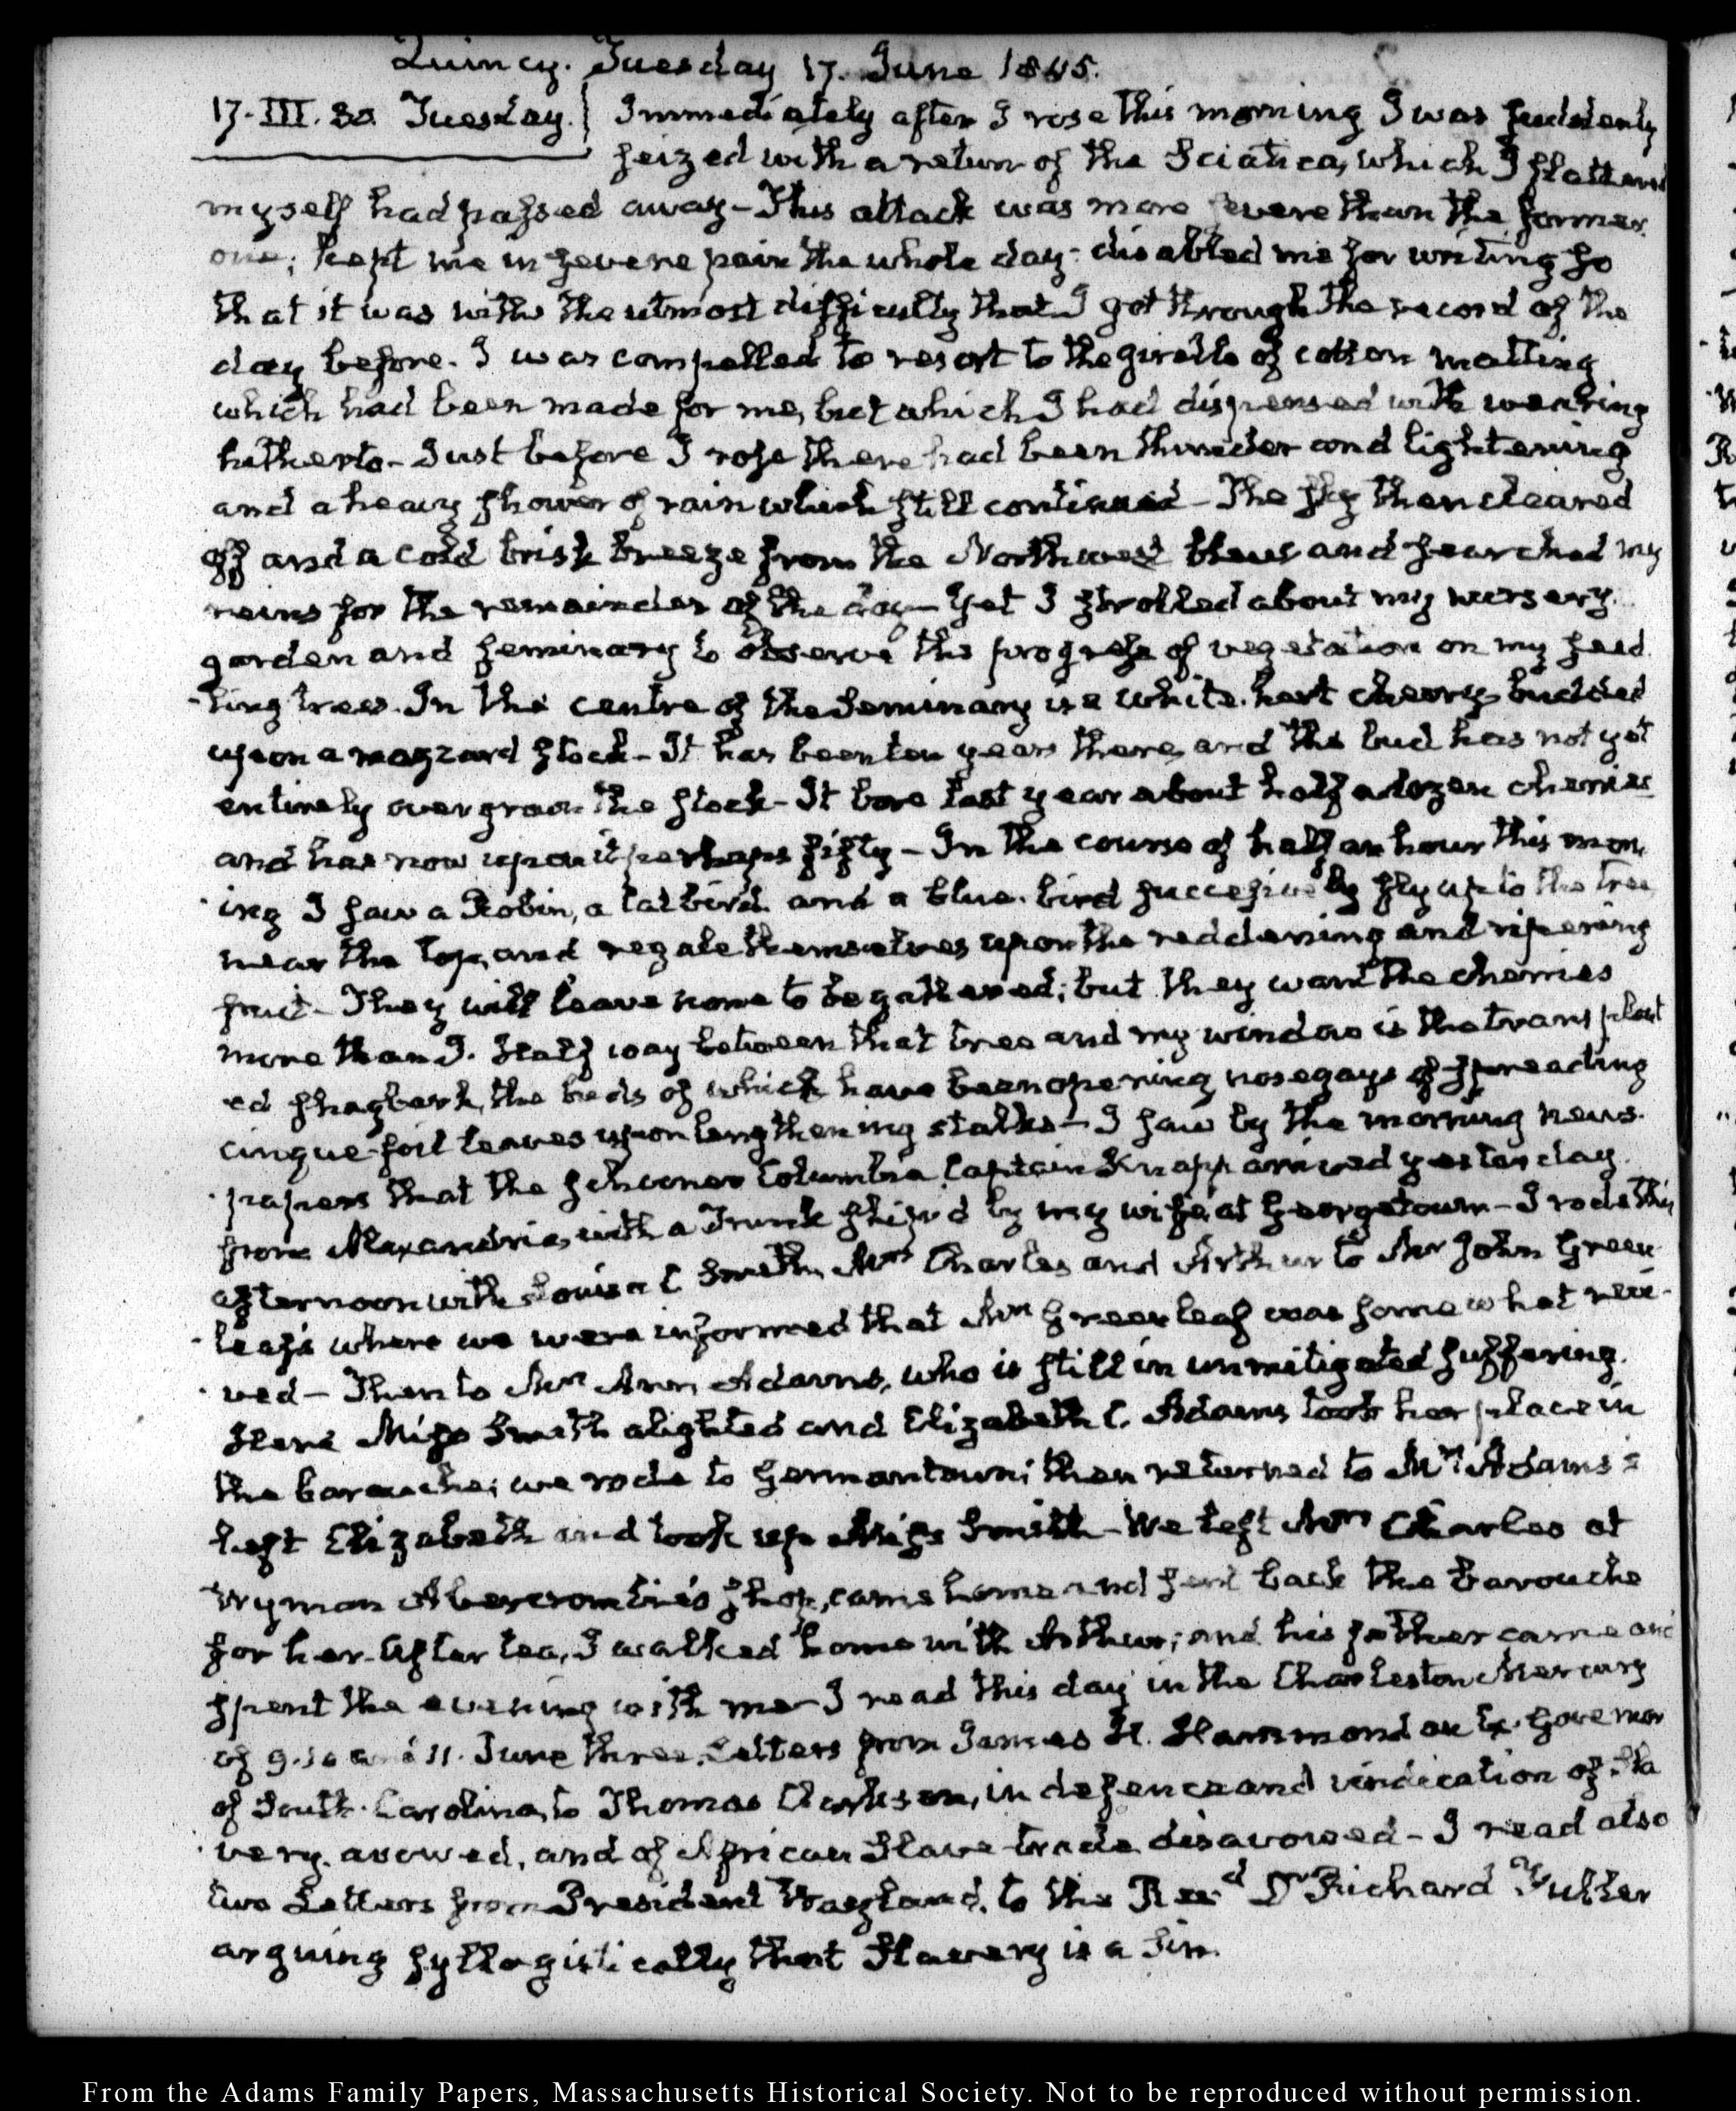 Quincy. Tuesday 17. June 1845.
17. III. 30. Tuesday. Immediately after I rose this morning I was suddenly
seized with a return of the Sciatica, which I flattered
myself had passed away – This attack was more severe than the former
one; kept me in severe pain the whole day – disabled me for writing so
that it was with the utmost difficulty that I got through the record of the
day before. I was compelled to resort to the girdle of cotton matting
which had been made for me, but which I had dispensed with wearing
hitherto – Just before I rose there had been thunder and lightening
and a heavy shower of rain which still continued – The sky then cleared
off and a cold brisk breeze from the Northwest blew and searched my
reins for the remainder of the day – Yet I strolled about my nursery.
garden and seminary to observe the progress of vegetation on my seed
-ling trees. In the centre of the Seminary is a white-heart cherry budded
upon a mazzard stock – It has been ten years there, and the bud has not yet
entirely overgrown the stock – It bore last year about half a dozen cherries
and has now upon it perhaps fifty – In the course of half an hour this morn
ing I saw a Robin, a Cat bird. and a blue-bird successively fly up to the tree
near the top, and regale themselves upon the reddening and ripening
fruit – They will leave none to be gathered; but they want the cherries
more than I. Half way between that tree and my window is the transplant
ed shagbark, the buds of which have been opening nosegays of spreading
cinque-foil leaves upon lengthening stalks – I saw by the morning news-
papers that the Schooner Columbia, Captain Knapp arrived yesterday
from Alexandria, with a Trunk shipp'd by my wife, at Georgetown – I rode this
afternoon with Louisa C Smith, Mrs Charles and Arthur to Mr John Green
leaf's where we were informed that Mrs Greenleaf was somewhat revi-
ved – Then to Mrs Ann Adams, who is still in unmitigated suffering.
Here Miss Smith alighted and Elizabeth C. Adams took her place in
the barouche; we rode to Germantown; then returned to Mrs Adams's
left Elizabeth and took up Miss Smith – We left Mrs Charles at
Wyman Abercrombie's shop, came home and sent back the barouche
for her. After tea, I walked home with Arthur; and his father came and
spent the evening with me – I read this day in the Charleston Mercury
of 9. 10 and 11. June three Letters from James H. Hammond an Ex-Governor
of South-Carolina, to Thomas Clarkson, in defence and vindication of Sla
very avowed, and of African Slave-trade disavowed – I read also
two Letters from President Wayland, to the Revd Dr Richard Fuller
arguing syllogistically that Slavery is a Sin.
From the Adams Family Papers, Massachusetts Historical Society. Not to be reproduced without permission.